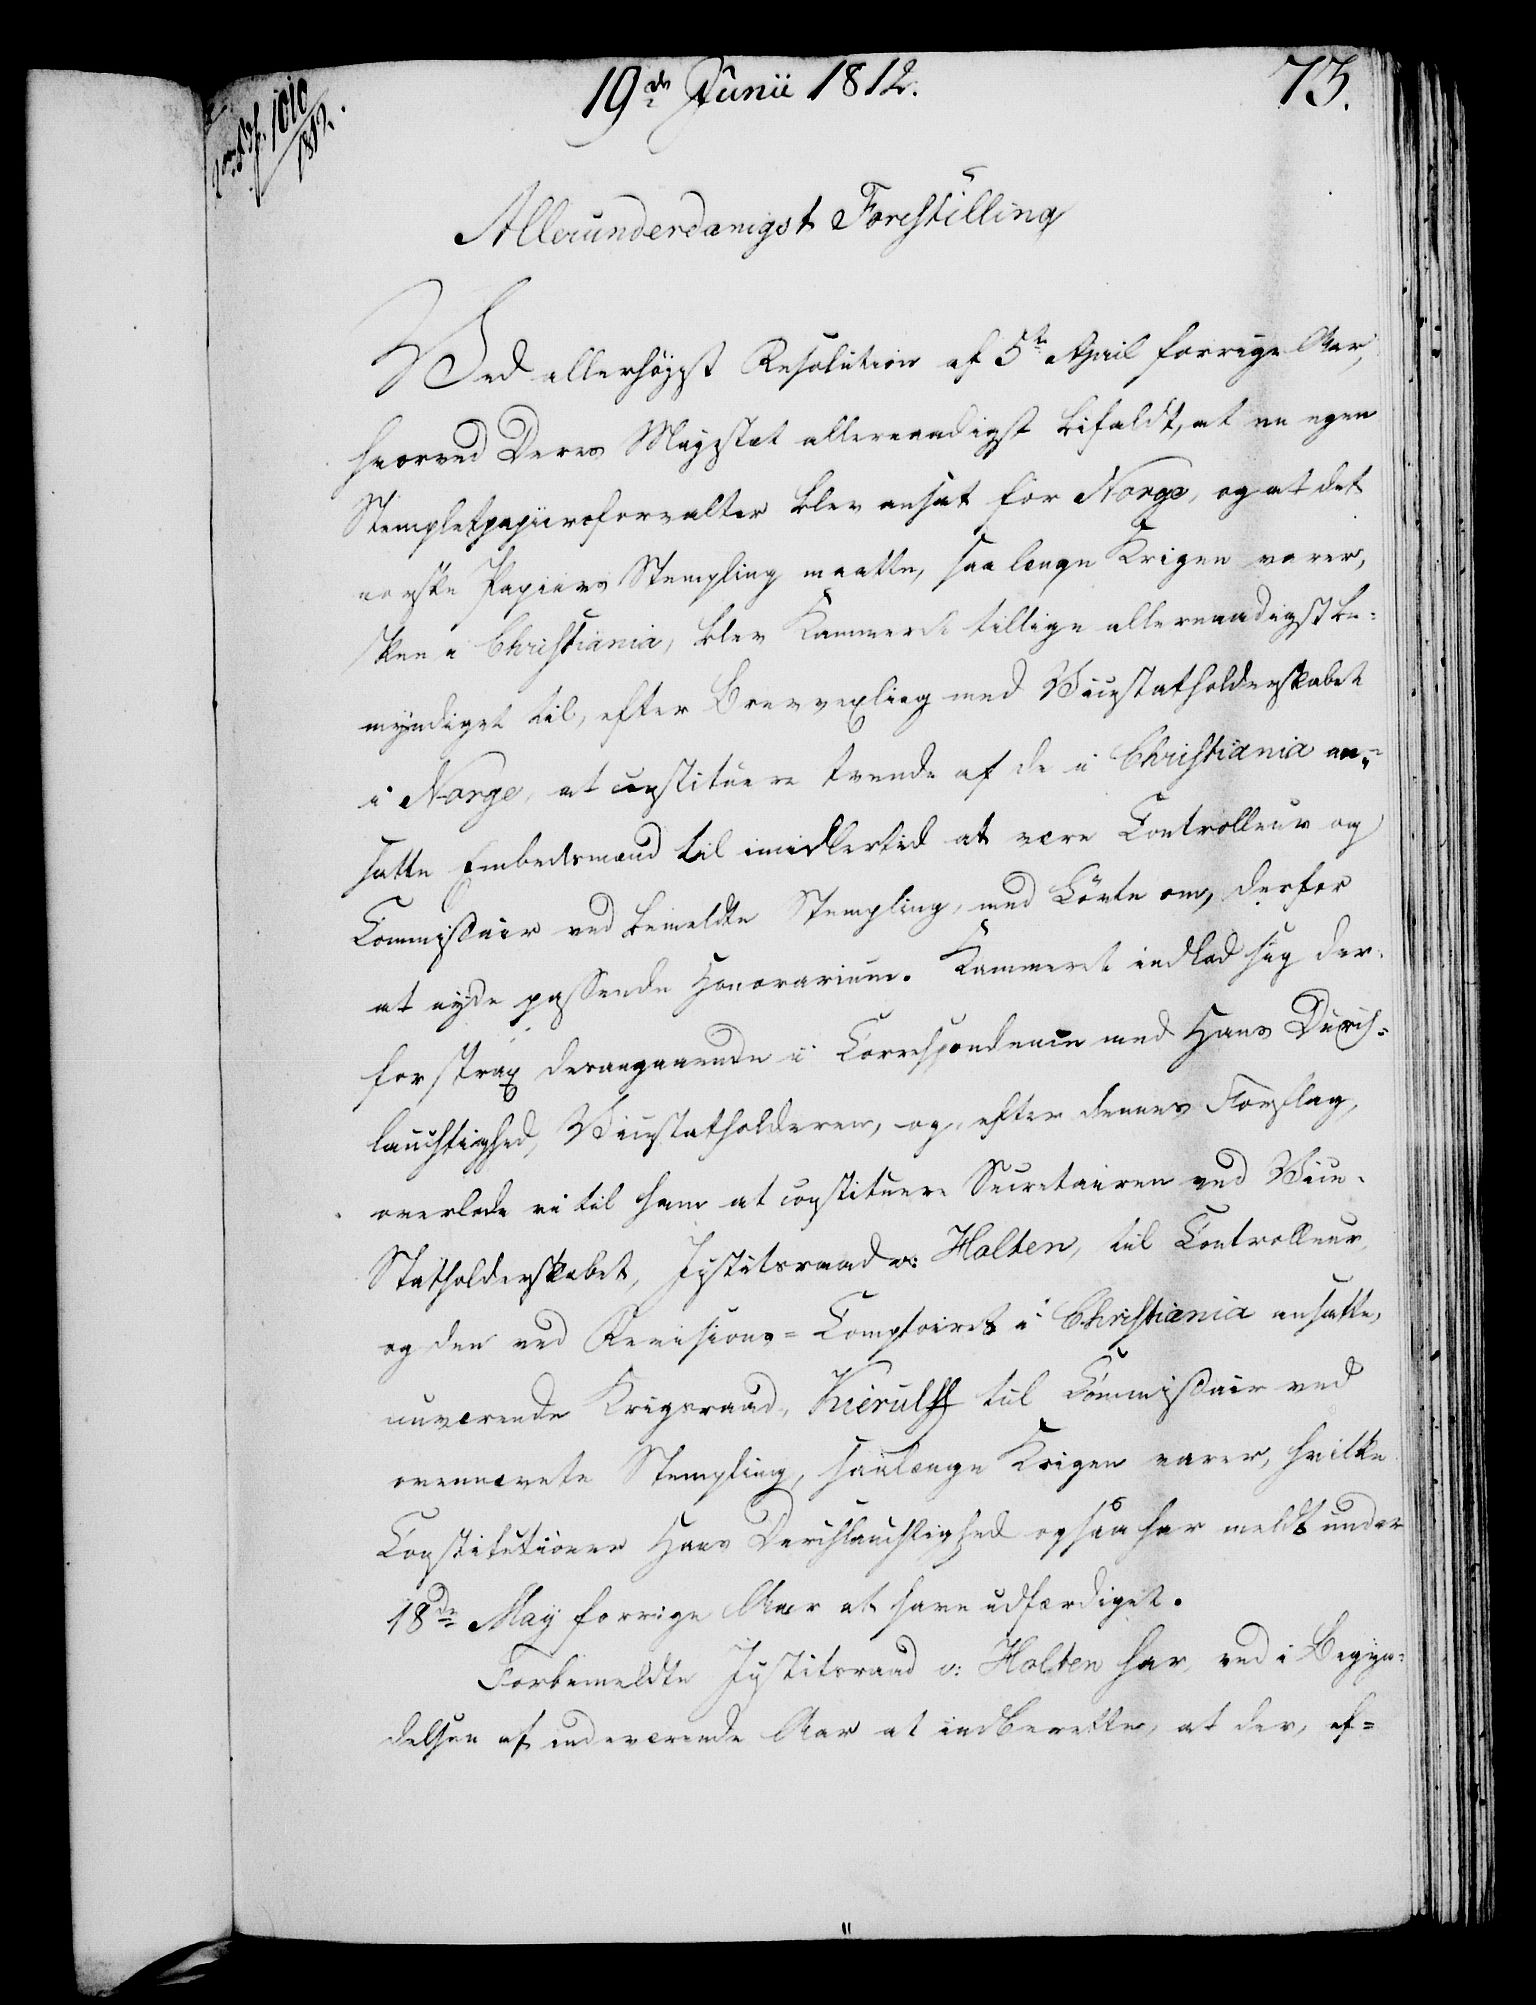 19de Junii 1812.
73.
1010
1812.
Allerunderdanigst Forestilling
Ved allerhøyst Resolution af 5te April forrige Aar,
hvorved Deres Majestæt allernaadigst bifaldt, at en egen
Stempletpapiirsforvalter blev ansat for Norge, og at det
norske Papiers Stempling maatte, saa længe Krigen varer,
skee i Christiania, blev Kammeret tillige allernaadigst be-
myndiget til, efter Brevvexling med Vicestatholderskabet
i Norge, at constituere tvende af de i Christiania an-
satte Embedsmænd til imidlertid at være Controlleur og
Commissair ved bemeldte Stempling, med Løvte om, derfor
at nyde passende Honorarium. Kammeret indlod sig der-
for strax derangaaende i Correspondence med Hans Durch-
lauchtighed, Vicestatholderen, og, efter dennes Forslag,
overlode vi til ham at constituere Secretairen ved Vice-
Statholderskabet, Justitsraad v: Holten, til Controlleur,
og den ved Revisions-Comptoiret i Christiania ansatte,
nuværende Krigsraad, Kierulff til Commissair ved
ovennævnte Stempling, saalænge Krigen varer, hvilke
Constitutioner Hans Durchlauchtighed ogsaa har meldt under
18de May forrige Aar at have udfærdiget.
Forbemeldte Justitsraad v: Holten har, ved i Begyn-
delsen af indeværende Aar at indberette, at der, ef-